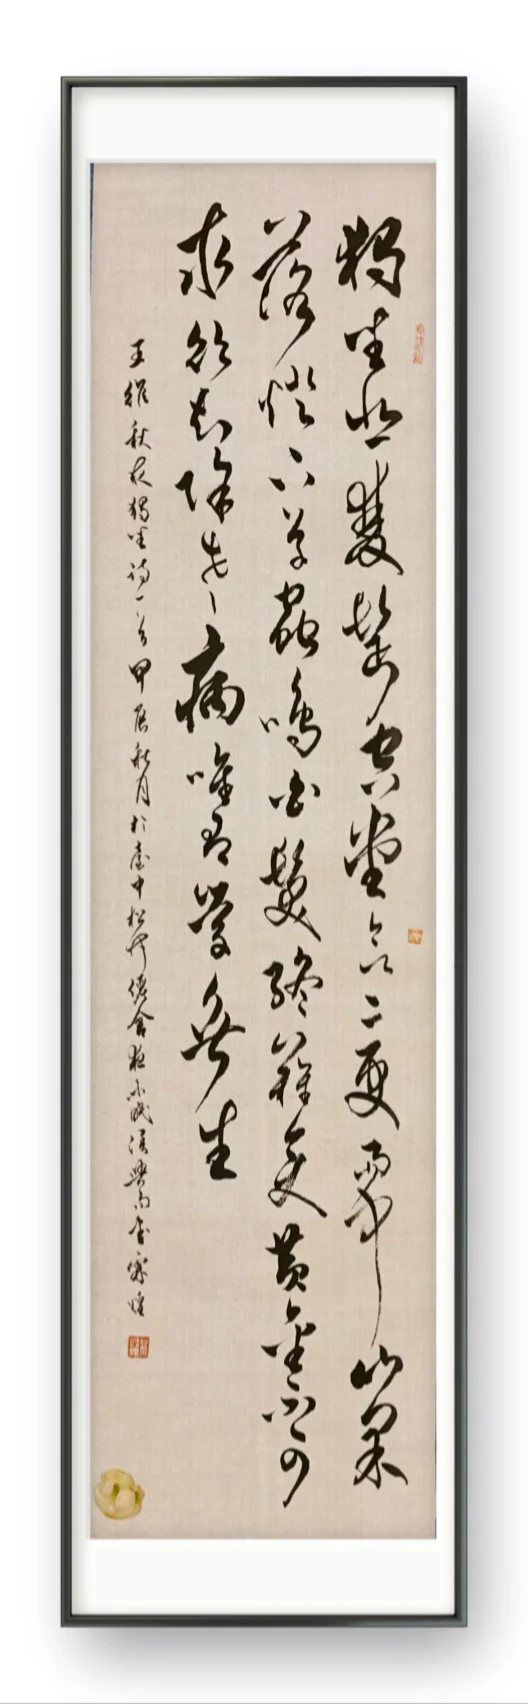 獨坐悲雙鬢空堂欲二更雨中山果
落燈下草蟲鳴白髮終難變黃金不可
求欲知除老病唯有學無生
王維秋夜獨坐詩一首甲辰秋月於臺中松竹